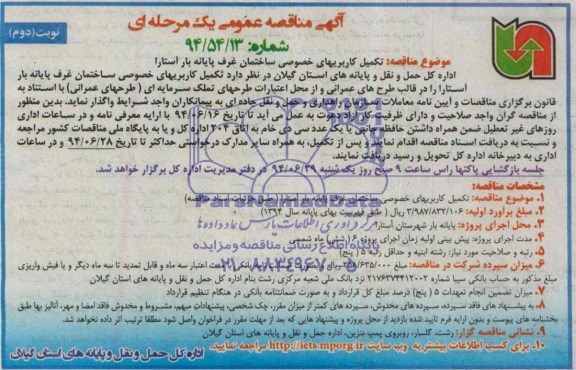 آگهی مناقصه عمومی یک مرحله ای
نوبت(دوم)
شماره: ۹۴/۵۴/۱۳
موضوع مناقصه: تکمیل کاربریهای خصوصی ساختمان غرف پایانه بار آستارا
اداره کل حمل و نقل و پایانه های استان گیلان در نظر دارد تکمیل کاربریهای خصوصی ساختمان غرف پایانه بار
آستارا را در قالب طرح های عمرانی و از محل اعتبارات طرحهای تملک سرمایه ای (طرحهای عمرانی) با استناد به
قانون برگزاری مناقصات و آیین نامه معاملات سازمان راهداری و حمل و نقل جاده ای به پیمانکاران واجد شرایط واگذار نماید. بدین منظور
از مناقصه گران واجد صلاحیت و دارای ظرفیت کار آزاد دعوت به عمل می آید تا تاریخ ۹۴/۰۶/۱۶ با ارایه معرفی نامه و در ساعات اداری
روزهای غیر تعطیل ضمن همراه داشتن حافظه جانبی یا یک عدد سی دی خام به اتاق ۲۰۴ اداره کل و یا به پایگاه ملی مناقصات کشور مراجعه
و نسبت به دریافت اسناد مناقصه اقدام نمایند و پس از تکمیل، به همراه سایر مدارک درخواستی حداکثر تا تاریخ ۹۴/۰۶/۲۸ و در ساعات
اداری به دبیرخانه اداره کل تحویل و رسید دریافت نمایند.
جلسه بازگشایی پاکتها راس ساعت ۹ صبح روز یک شنبه ۹۴/۰۶/۲۹ در دفتر مدیریت اداره کل برگزار خواهد شد.
مشخصات مناقصه:
۱. موضوع مناقصه: تکمیل کاربریهای خصوصی ساختمان غرف پایانه بار آستارا (طبق جزئیات اسناد مناقصه)
۲. مبلغ برآورد اولیه: ۳/۹۸۷/۸۳۲/۱۰۶ ریال ( طبق فهرست بهای پایانه سال ۱۳۹۴)
۳. محل اجرای پروژه: پایانه بار شهرستان آستارا
۴. مدت اجرای پروژه: پیش بینی اولیه زمان اجرای پروژه ۶ (شش) ماه شمسی
۵. رتبه و صلاحیت مورد نیاز: رشته ابنیه و حداقل رتبه ۵ (پنج)
۶. میزان سپرده شرکت در مناقصه: مبلغ ۶۳۵/۰۰۰ ریال بانکی دارای مدت اعتبار سه ماه و قابل تمدید تا سه ماه دیگر و یا فیش واریزی
مبلغ مذکور به حساب بانکی سیبا شماره ۲۱۷۶۳۷۴۴۱۲۰۰۲ نزد بانک ملی شعبه مرکزی رشت بنام اداره کل حمل و نقل و پایانه های استان گیلان
۷. میزان تضمین انجام تعهدات: ۵ (پنج) درصد مبلغ کل قرارداد و به صورت ضمانتنامه بانکی در هنگام تنظیم قرارداد
۸. به پیشنهاد های فاقد سپرده، سپرده های مخدوش، سپرده های کمتر از میزان مقرر، چک شخصی، پیشنهادات مبهم، مشروط و مخدوش فاقد امضا و مهر، آنالیز بها طبق
بخشنامه های پیوست و بدون ارایه فرم تائید شده بازدید از محل پروژه و پیشنهاد هایی که بعد از مهلت مقرر در فراخوان واصل شود مطلقا ترتیب اثر داده نخواهد شد.
۹. نشانی مناقصه گزار: رشت، گلسار، روبروی پمپ بنزین، اداره کل حمل و نقل و پایانه های استان گیلان
۱۰. برای کسب اطلاعات بیشتر به وب سایت http://iets.mporg.ir مراجعه نمایید.
اداره کل حمل و نقل و پایانه های استان گیلان
ParsNamadData
مرکز فرآوری اطلاعات پارس نماد داده ها
پایگاه اطلاع رسانی مناقصه و مزایده
۰۲۱-۸۸۳۴۹۶۷۰